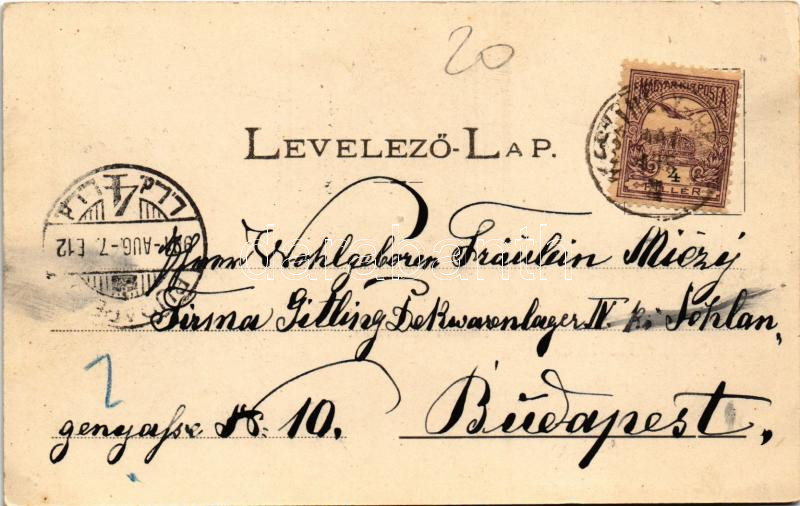 20
MAGYAR KIR. POSTA
4
FILLÉR
LEVELEZŐ-LAP.
BUDAPEST
901-AUG.-7. E12
4
Wohlgeboren Fräulein Miézy
Firma Gitling Dekwarenlager IV. Schlan,
gengasse No: 10. Budapest,